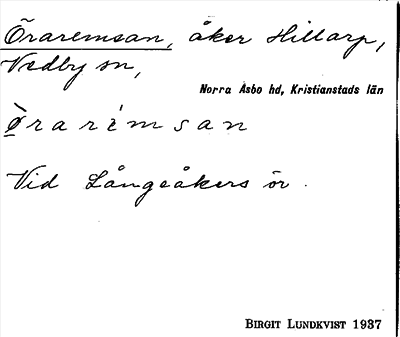 Öraremsan, åker Hillarp,
Vedby sn,
Norra Åsbo hd, Kristianstads län
Vid Långeåkers ör.
BIRGIT LUNDKVIST 1937